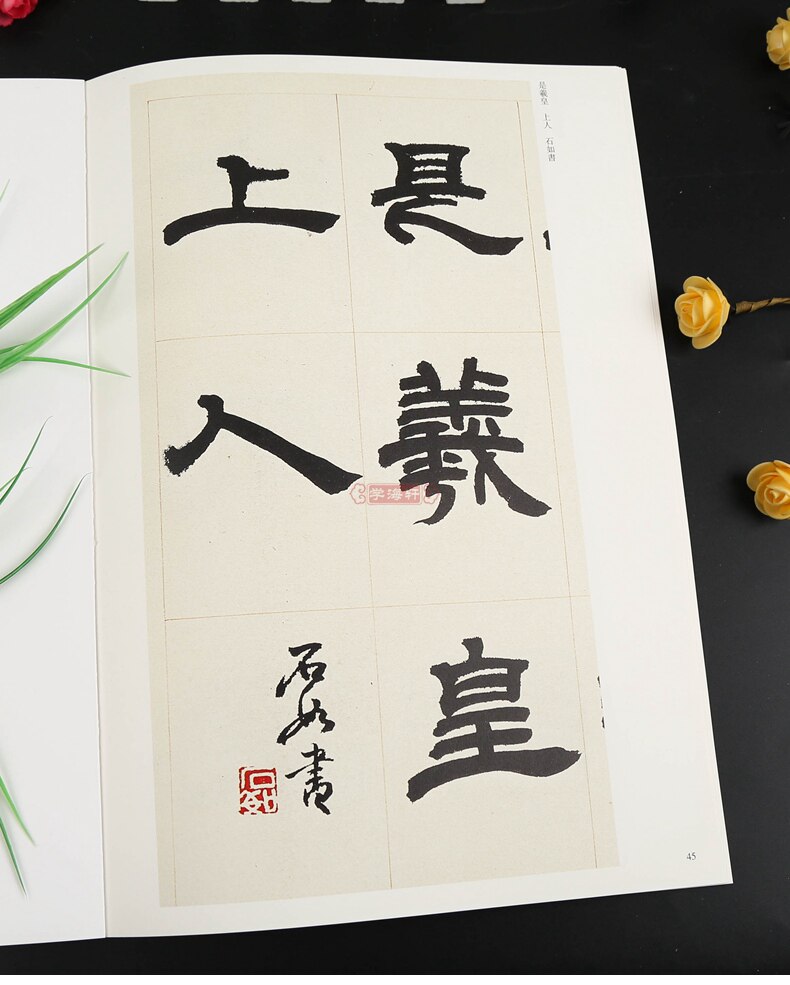 是羲皇
上人
石如書
是羲皇 上人 石如書
学海轩
45